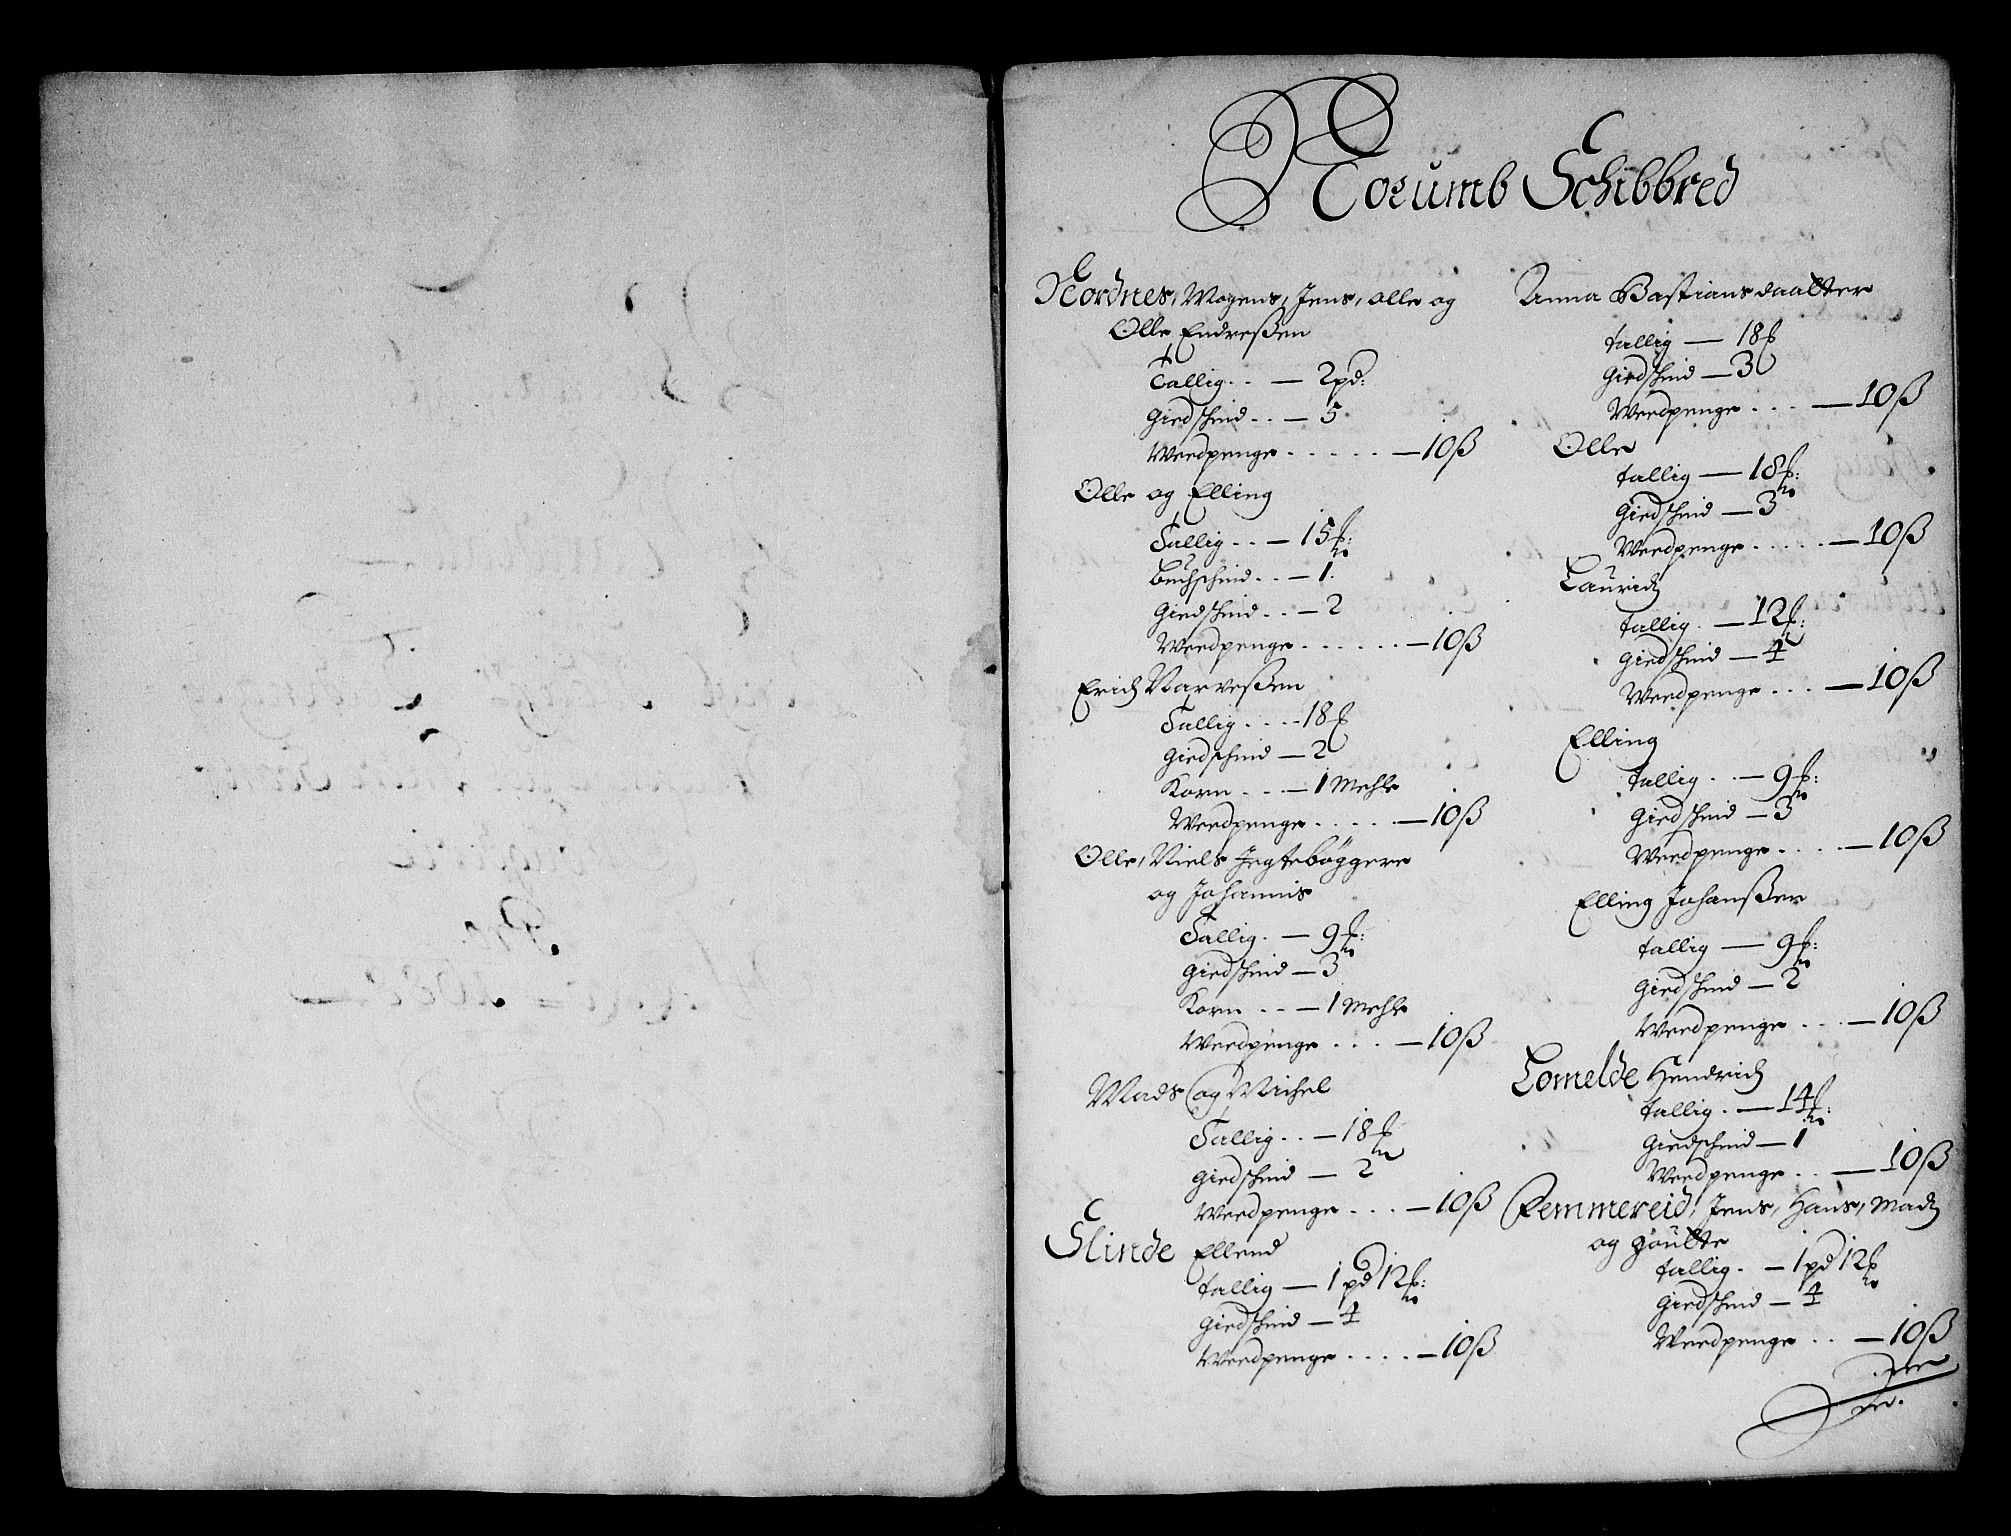 Norumb Schibbred
Nordnes, Mogens, Jens, olle og
Olle Endreßen
Tallig . . — 2 pd:
Giedschind . . — 5
Weedpenge . . . . . — 10 ß
Olle og Elling
Tallig . . — 15 ℔:
Buchschind . . — 1.
Giedschind . . — 2
Weedpenge . . . . . . — 10 ß
Erich Narveßen
Tallig . . . . 18 ℔
Giedschind — 2
Korn . . . — 1 Mehle
Weedpenge . . . . . — 10 ß
Olle, Niels Jegtebøggere
og Johannis
Tallig . — 9 ℔:
Giedschind — 3
Korn . . . — 1 Mehle
Weedpenge . . . . — 10 ß
Mads og Michel
Tallig . . — 18 ℔
Giedschind — 2
Weedpenge . . . . — 10 ß
Slinde Ellend
tallig — 1 pd 12 ℔:
Giedschind — 4
Weedpenge . . . . — 10 ß
Anna Bastians daatter
tallig — 18 ℔
Giedschind — 3
Weedpenge . . . . — 10 ß
Olle
tallig — 18 ℔:
Giedschind — 3
Weedpenge . . . . . — 10 ß
Laurich
tallig . — 12 ℔:
Giedschind — 4
Weedpenge . . . — 10 ß
Elling
tallig . . — 9 ℔:
Giedschind — 3
Weedpenge . . . . — 10 ß
Elling Johanßen
tallig — 9 ℔:
Giedschind — 2
Weedpenge . . . — 10 ß
Lomelde Hendrich
tallig . — 14 ℔:
Giedschind — 1
Weedpenge . . — 10 ß
Remmereid, Jens, Hans, Mads
og Goutte
tallig . — 1 pd 12 ℔
Giedschind — 4
Weedpenge . . — 10 ß